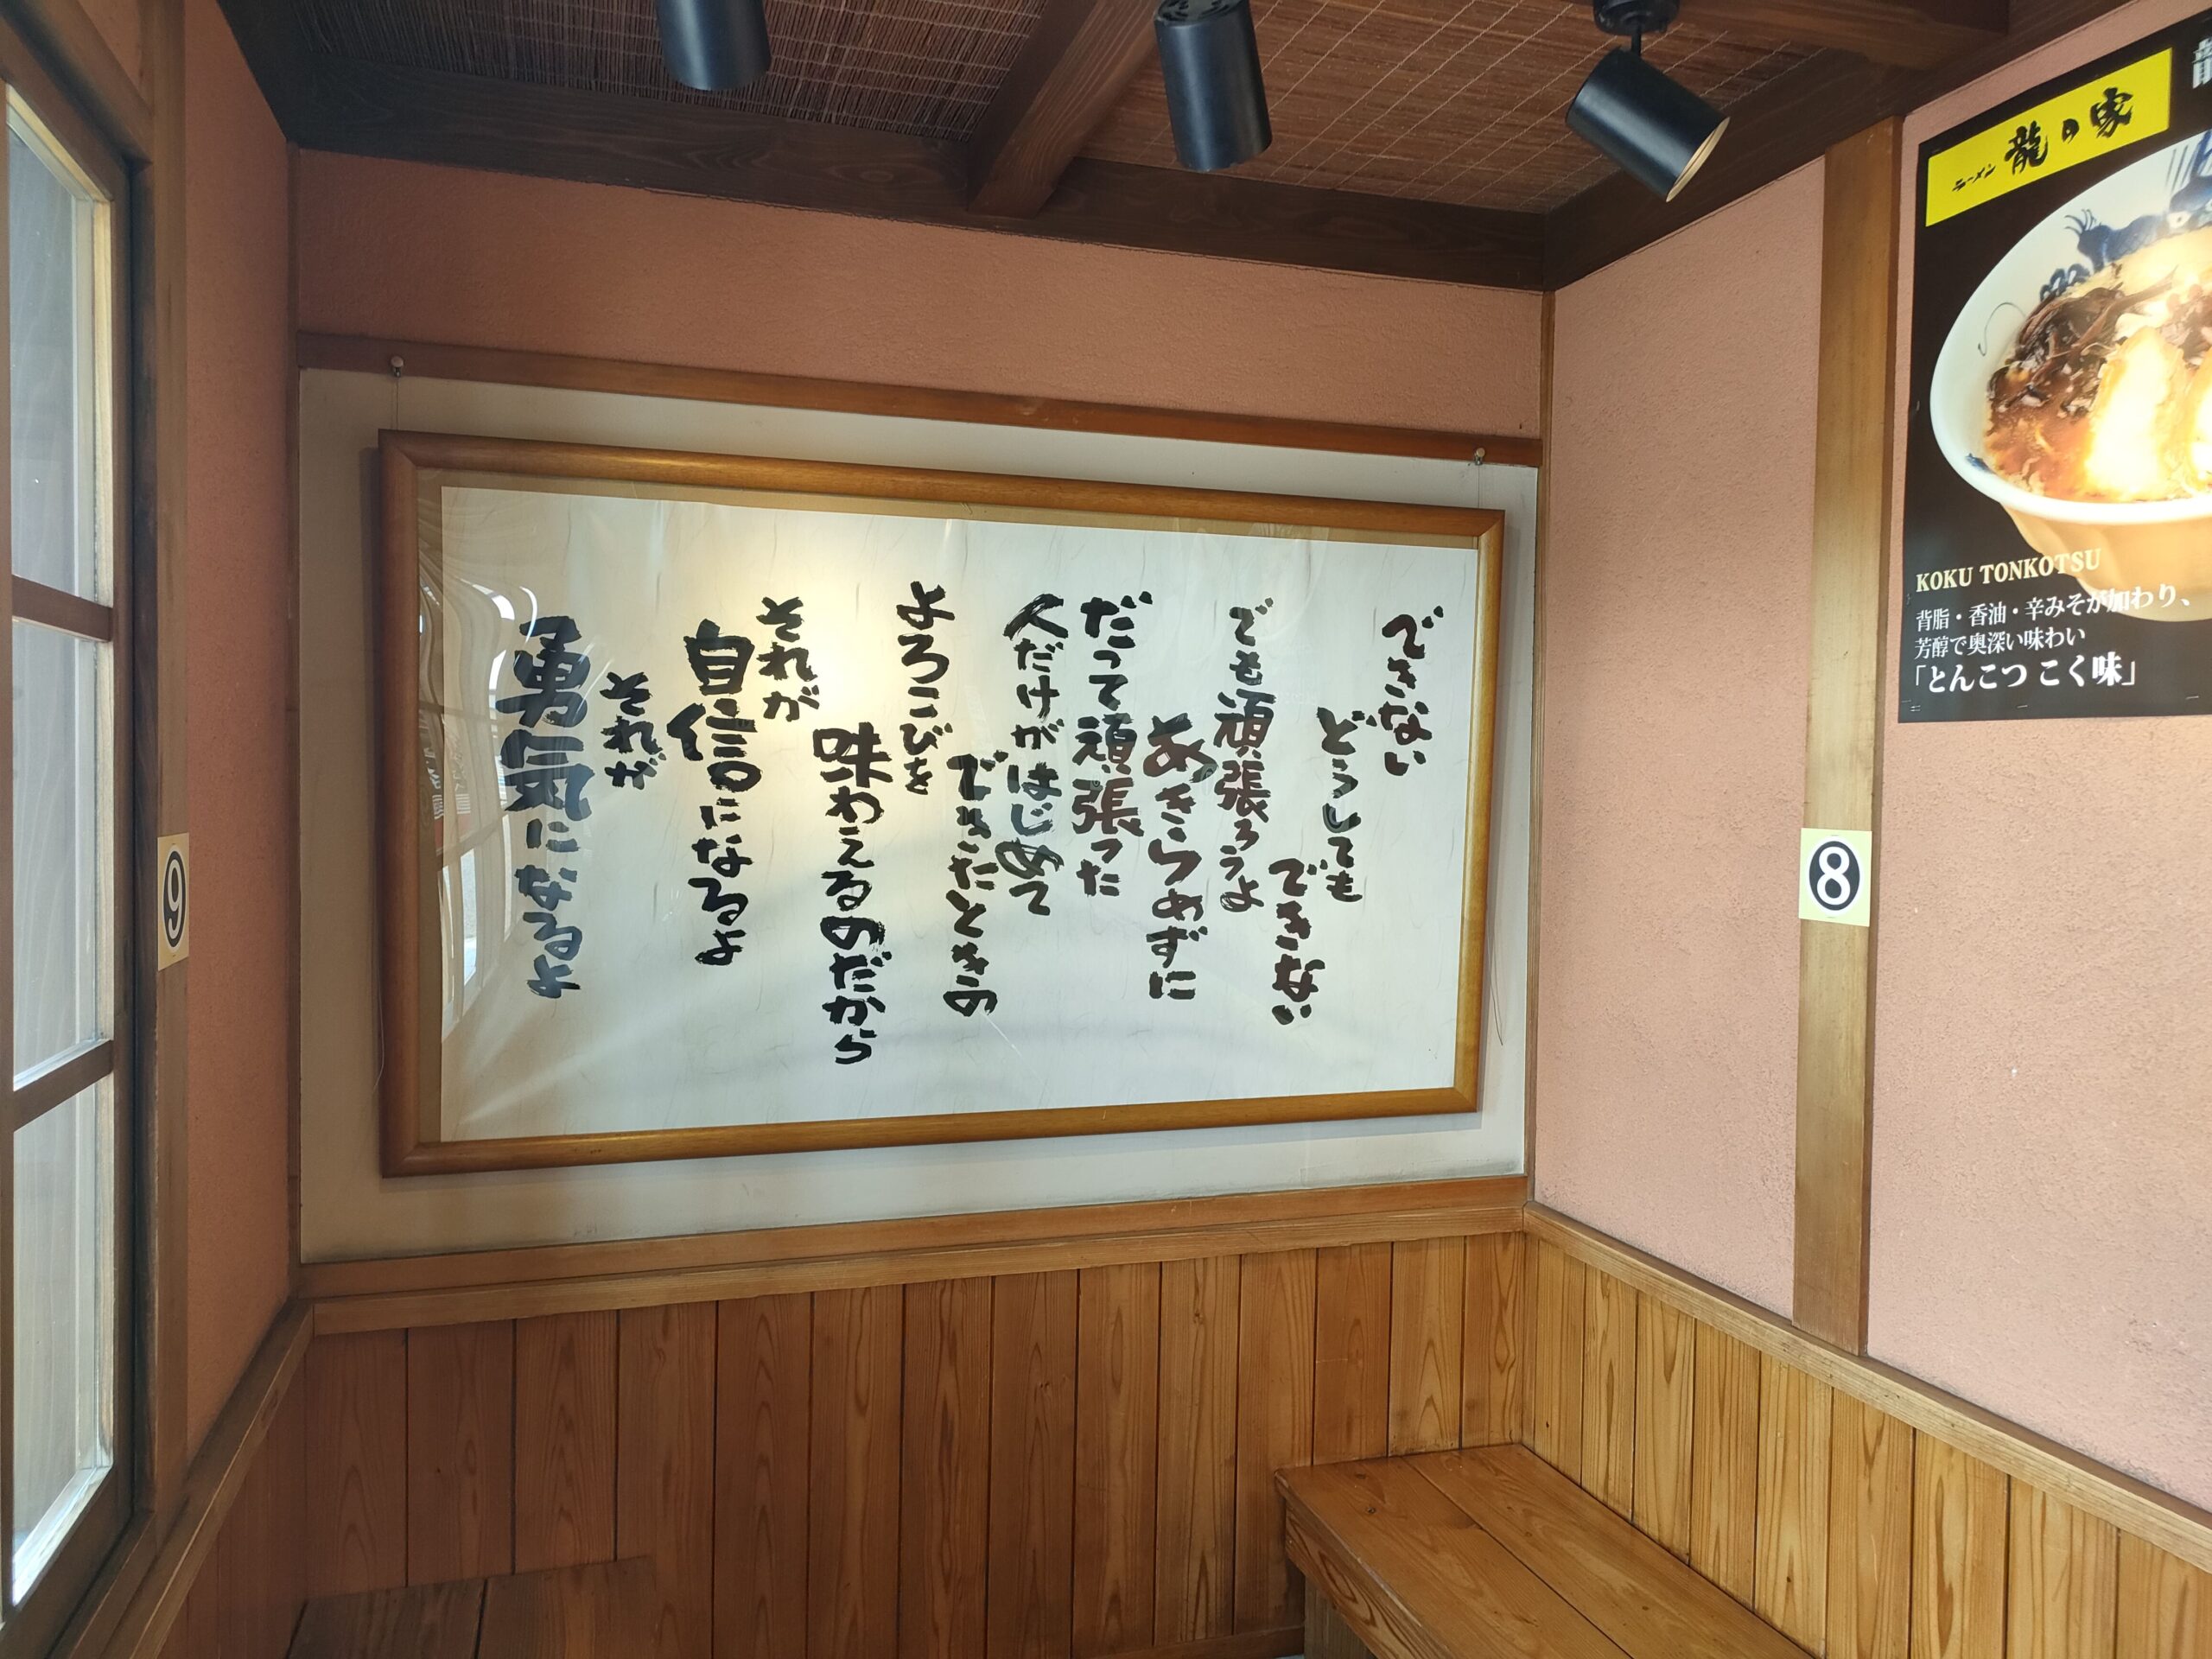 できない
どうしても
できない
でも頑張ろうよ
あきらめずに
だって頑張った
人だけがはじめて
できたときの
よろこびを
味わえるのだから
それが
自信になるよ
それが
勇気になるよ
9
8
ラーメン 龍の家
KOKU TONKOTSU
背脂・香油・辛みそが加わり、
芳醇で奥深い味わい
「とんこつ こく味」